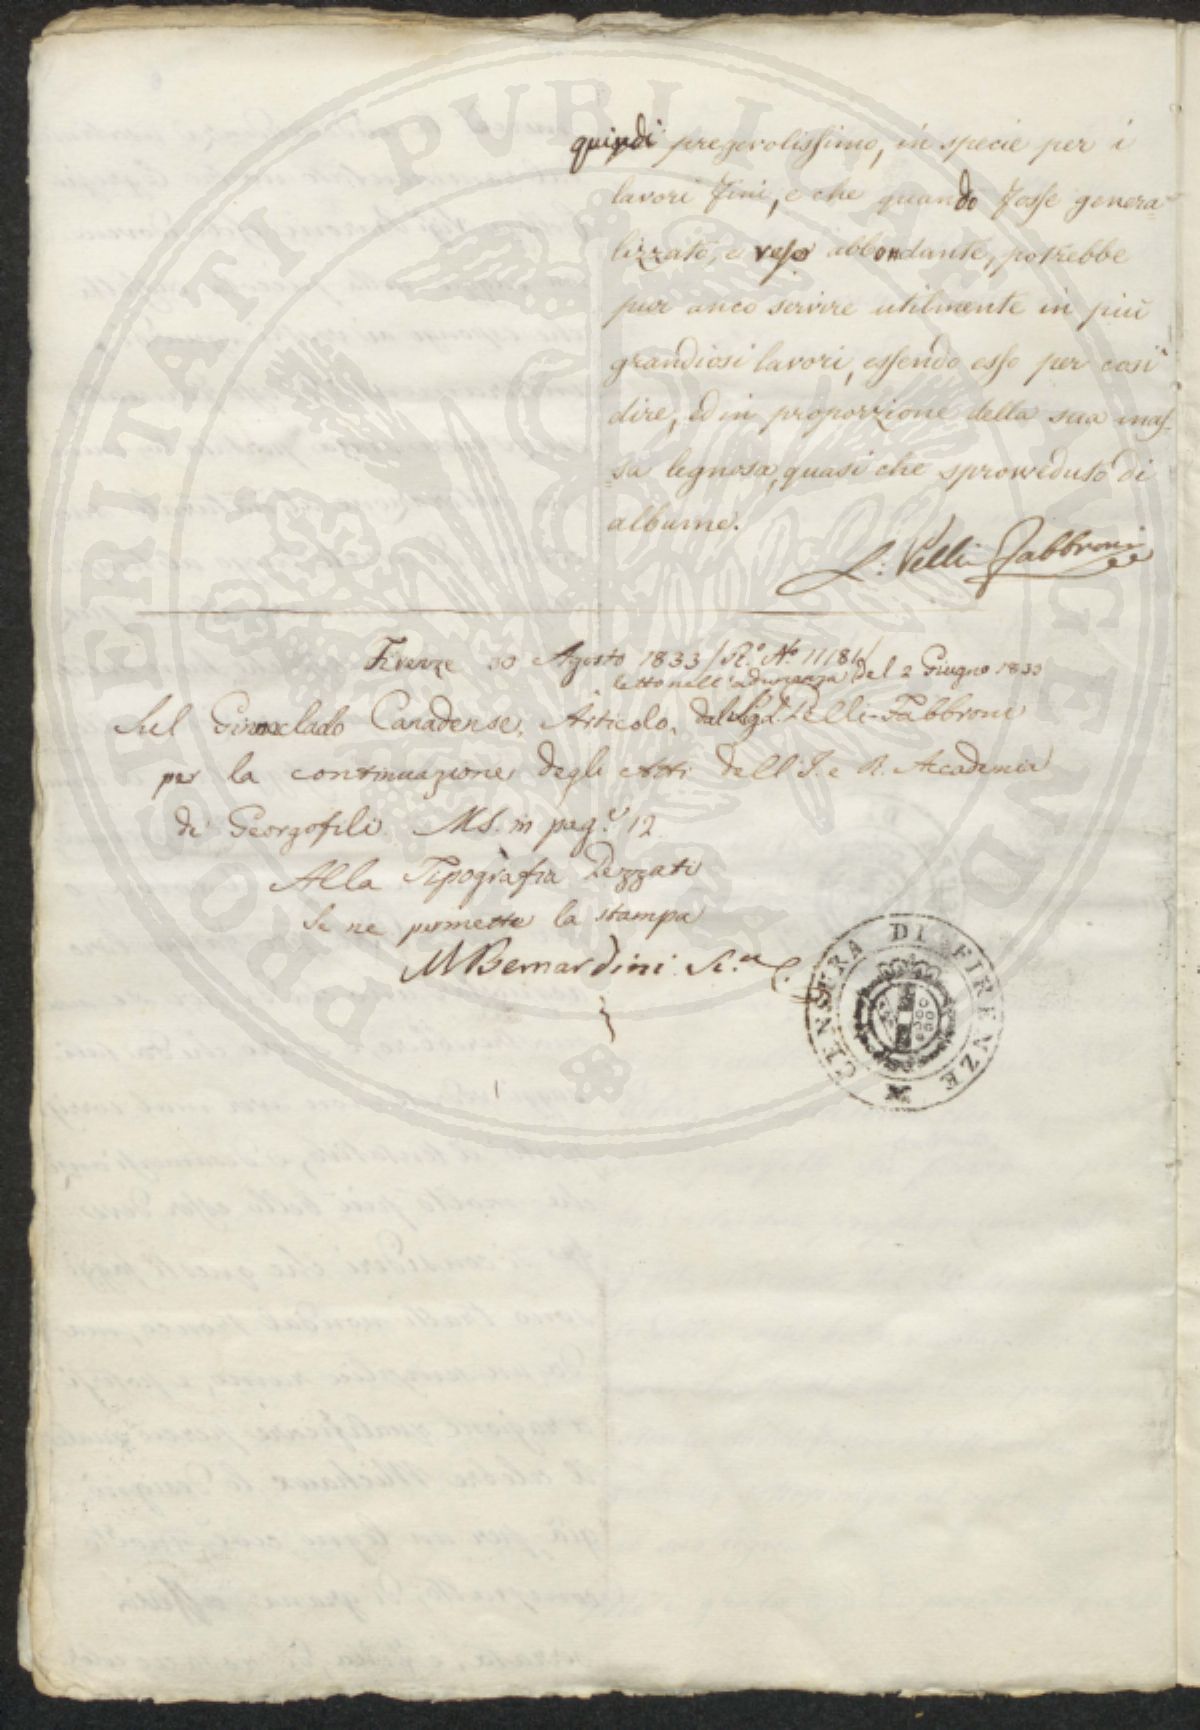 quindi pregevolissimo, in specie per i
lavori fini, e che quando fosse genera-
lizzato, e reso abbondante, potrebbe
pur anco servire utilmente in più
grandiosi lavori, essendo esso per così
dire, ed in proporzione della sua mas-
sa legnosa, quasi che sprovveduto di
alburne.
L: Pelli Fabbroni
Firenze 30 Agosto 1833 / R.º N.º 11181/
letto nell'adunanza del 2 Giugno 1833
Sul Ginnoclado Canadense, Articolo, dal Sig.r Pelli-Fabbroni
per la continuazione degli Atti dell'I. e R. Accademia
de' Georgofili. MS. in pag.e 12
Alla Tipografia Pezzati
Se ne permette la stampa
M Bernardini
CENSURA DI FIRENZE
PROSPERITATI PUBLICAE AUGENDAE